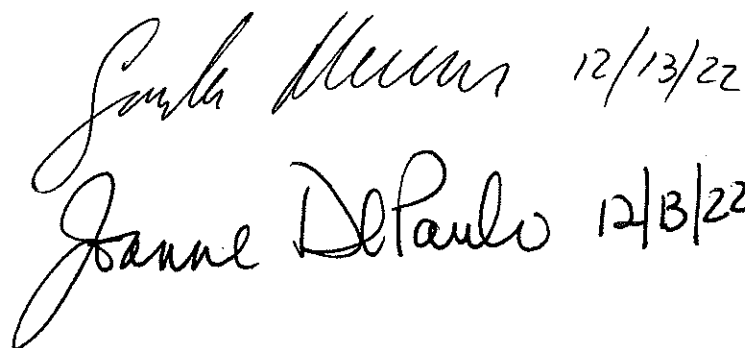 12/13/22
Joanne DePaulo 12/13/22